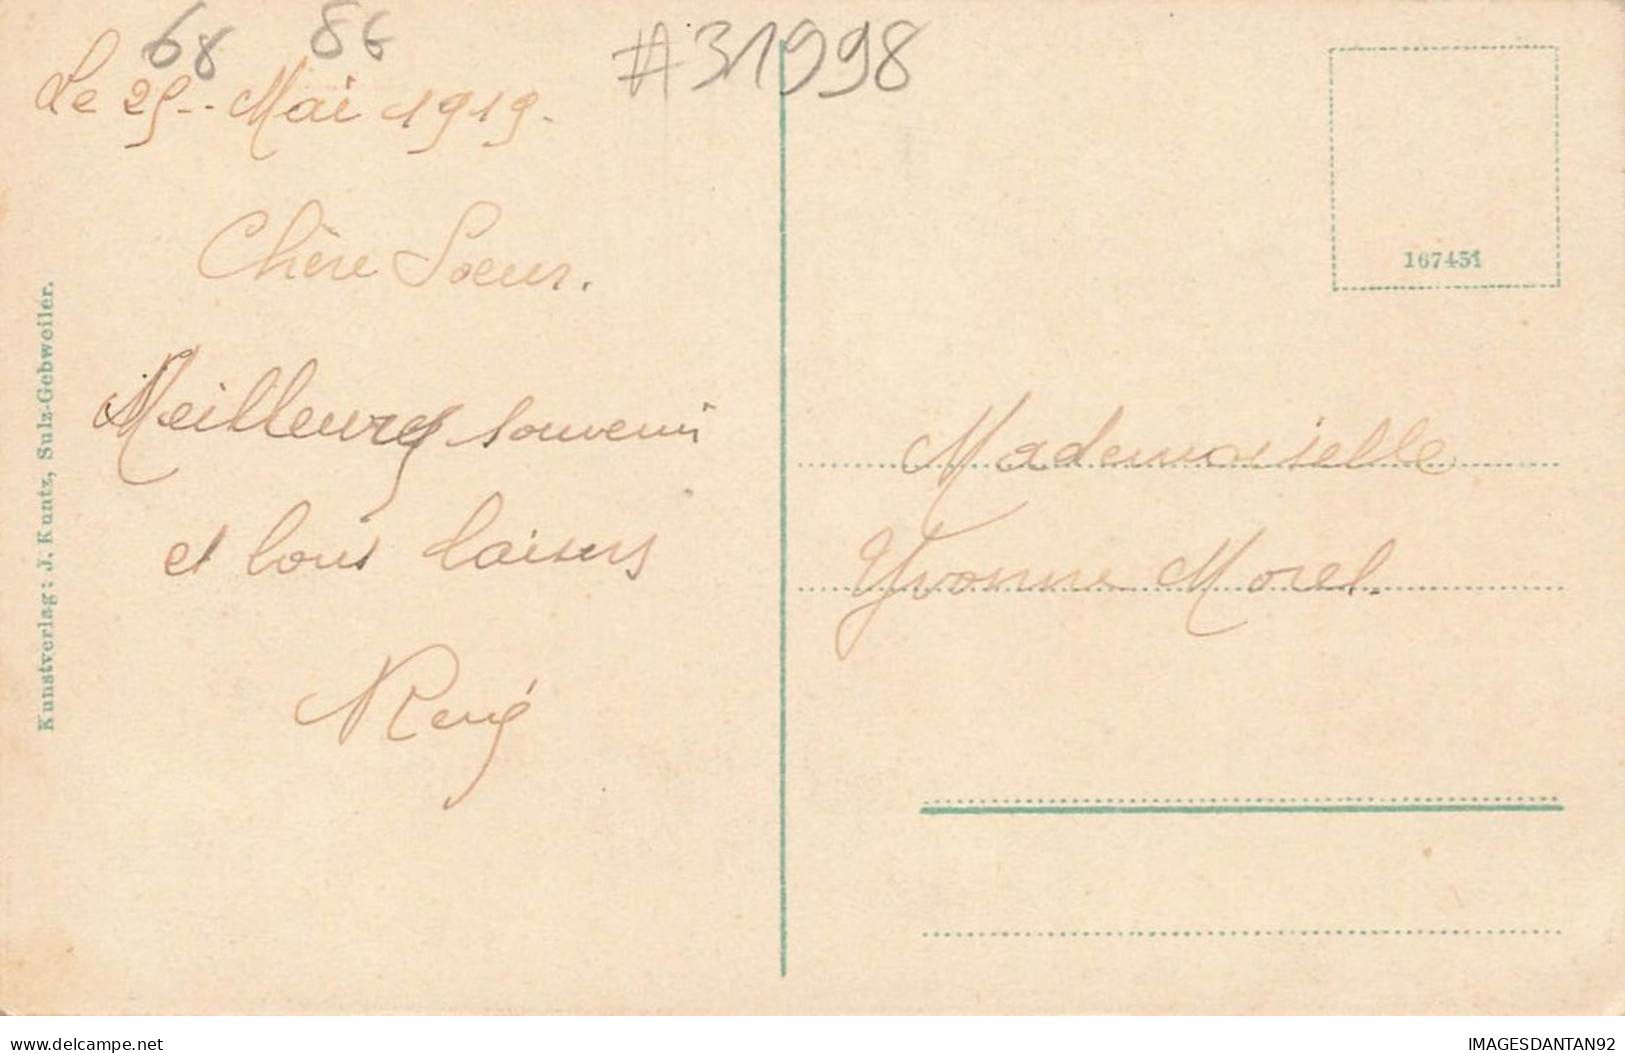 68 86
#31998
Le 25-- Mai 1919.
Chère Soeur.
Meilleurs souvenir
et bons baisers
René
Kunstverlag: J. Kuntz, Sulz-Gebweiler.
167451
Mademoiselle
Yvonne Morel.
www.delcampe.net
IMAGESDANTAN92